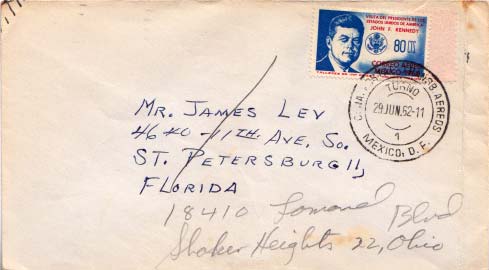 VISITA DEL PRESIDENTE DE LOS
ESTADOS UNIDOS DE AMERICA
JOHN F. KENNEDY
80
CORREO AEREO
TURNO
29 JUN. 62-11
1
MEXICO, D. F.
AEREOS
MR. JAMES LEV
4640-11TH AVE, SO.
ST. PETERSBURG 11,
FLORIDA
18410 Lomond Blvd
Shaker Heights 22, Ohio